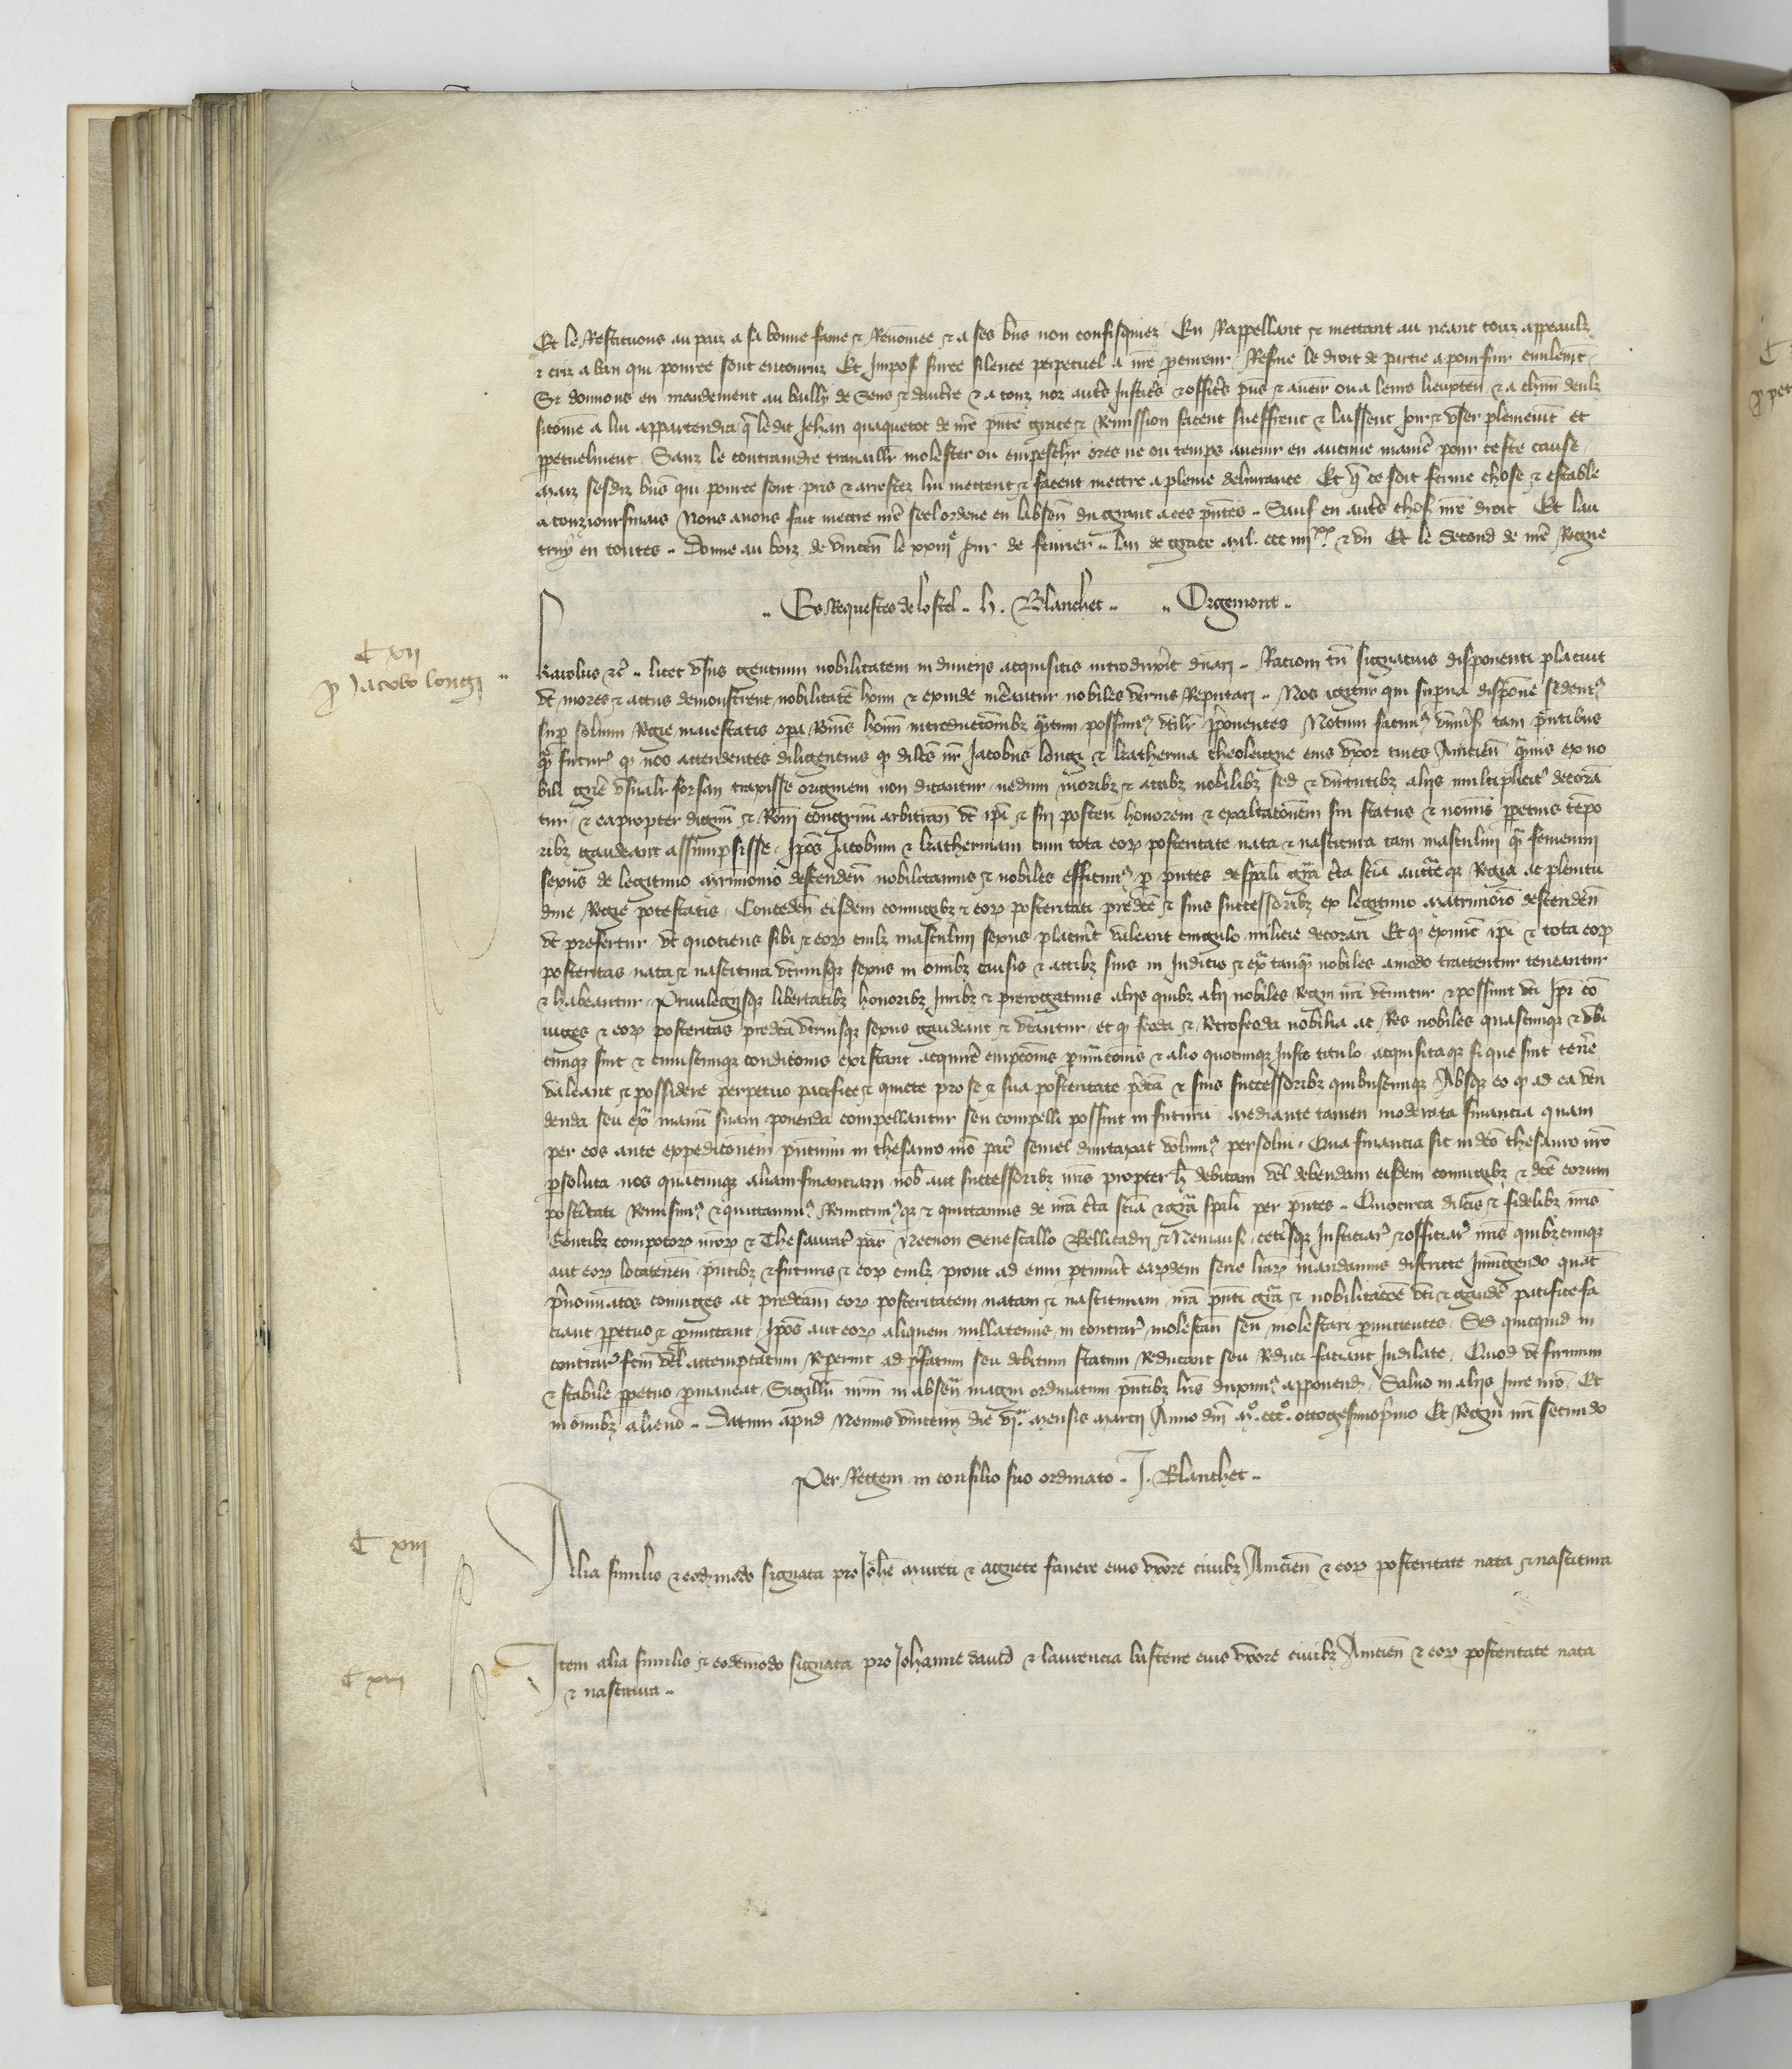 Et le Restituons au pais a sa bonne fame & Renomee & a ses biens non confisquiez En Rappellant & mettant au neant touz appeaulx
& criz a ban qui pource sont encouruz Et Imposons surce silence perpetuel a nre procureur Reserve le droit de partie a poursuir civilemt
Si donnons en mandement au bailly de Sens & daucerre & a touz noz autres Justiciers & officiers pns & avenir ou a leurs lieuxten & a chun deulx
sicome a lui appartendra q ledit Jehan quaquetot de nre pnte grace & Remission facent sueffrent & laissent joir & user plenemt et
ppetuelment Sanz le contraindre travaillr molester ou empeschr ores ne ou temps avenir en aucune maniere pour ceste cause
Maiz sesdiz biens qui pource sont pris & arrestez lui mettent & facent mettre a plene delivrance Et q ce soit ferme chose & estable
a touzioursmais Nous avons fait mettre nre seel ordene en labsen du grant a ces pntes .. Sauf en autres choses nre droit Et lau
truy en toutes .. Donne au bois de vincen le xxiiie jour de fevrier .. lan de grace mil ccc iiiixx & un Et le Second de nre Regne
.. Es Requestes de lostel .. h. Blanchet .. .. Orgemont ..
C xii
p Jacobo longi ..
Karolus &c .. licet usus gentium nobilitatem in diviciis acquisitis introduxit dnari .. Racioni tn signatius disponenti placuit
ut mores & actus demonstrent nobilitate hoim & exinde mereantur nobiles verius Reputari .. Nos igitur qui superna dispone sedentes
sup solium Regie maiestatis opa Romis hoim introductoibz quatum possumus utilr pponentes Notum facimus univsis tam pntibus
qm futuris q nos attendentes diligentius q dilcus nr Jacobus longi & katherina theolergne eius uxor cives Anicien quavis ex no
bili genere usualr forsan traxisse originem non dicantur nedum moribz & actibz nobilibz sed & virtutibz aliis multipliciter decoran
tur & eapropter dignum & Romi congruum arbitram ut ipi & sui posteri honorem & exaltatoem sui status & nominis ppetuis tempo
ribz gaudeant assumpsisse Ipos Jacobum & katherinam cum tota eorum posteritate nata & nascitura tam masculini qm feminini
sexus de legitimo matrimonio descenden nobilitamus & nobiles efficimus p pntes de spali gra certa scia auctteqz Regia ac plenitu
dine Regie potestatis Conceden eisdem coniugibz & eorum posteritati predce & suis successoribz ex legitimo matrimoio descenden
ut prefertur ut quotiens sibi & eorum cuilz masculini sexus placuit valeant cingulo milicie decorari Et q exinde ipi & tota eorum
posteritas nata & nascitura utriusqz sexus in omnibz causis & actibz suis in Judicio & extra tanqm nobiles amodo tractentur teneantur
& habeantur Privilegiisqz libertatibz honoribz Juribz & prerogativis aliis quibz alii nobiles Regni nri utuntur & possunt uti Ipi co
iuges & eorum posteritas predcta utriusqz sexus gaudeant & utantur et q feoda & Retrofeoda nobilia ac Res nobiles quascunqz & ubi
cunqz sint & cuiuscunqz condicionis existant acquire empcois pmutacois & alio quocunqz Justo titulo acquisitaqz si que sint tenere
valeant & possidere perpetuo pacifice & quiete pro se & sua posteritate pdcta & suis successoribz quibuscunqz Absqz eo q ad ea ven
denda seu extra manu suam ponenda compellantur seu compelli possint in futuru Mediante tamen moderata financia quam
per eos ante expeditoem pntium in thesauro nro par semel dumtaxat volumus persolvi Qua financia sic in dco thesauro nro
psoluta nos quacunqz aliam financiam nob aut successoribz nris propter h debitam vel debendam eisdem coniugibz & dce eorum
posteritati Remisimus & quittavimus Remittimusqz & quittamus de nra certa scia & gra spali per pntes .. Quocirca dilcis & fidelibz nris
Gentibz compotorum nrorum & Thesaurariis par Necnon Senescallo Bellicadri & Nemausi ceterisqz Justiciariis & officiariis nris quibzcunqz
aut eorum locateneн pntibz & futuris & eorum cuilz prout ad eum ptinuit earumdem serie lrarum mandamus districte Iniungendo quat
pnominatos coniuges ac predctam eorum posteritatem natam & nascituram nra pnti gra & nobilitacoe uti & gaudere pacifice fa
ciant ppetuo & pmittant Ipos aut eorum aliquem nullatenus in contrariu molestan seu molestari pmittentes Sed quicquid in
contrariu fcm vel attemptatum Reperint ad pstatum seu debitum statum Reducant seu Reduci faciant Indilate Quod ut firmum
& stabile ppetuo pmaneat Sigillum nrm in absen magni ordinatum pntibz lris duximus apponend Salvo in aliis Jure nro Et
in omnibz alieno .. Datum apud Nemus vincenn die via mensis Marcii Anno dni Mo ccco octogesimoprimo Et Regni nri secundo
Per Regem in consilio suo ordinato .. J. Blanchet ..
C xiii
Alia similis & eod modo signata pro Johe Mureti & Agnete favere eius uxore civibz Anicien & eorum posteritate nata & nascitura
C xiiii
Item alia similis & eodemodo signata pro Johanne david & laurencia lustene eius uxore civibz Anicien & eorum posteritate nata
& nascitura ..